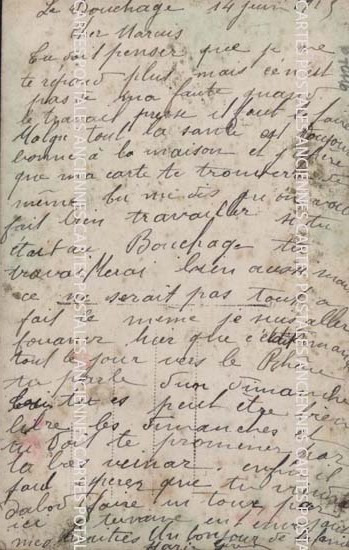 Le Bouchage 14 juin
Cher Marius
Tu doit penser que je ne
te repond plus mais ce n'est
pas de ma faute quand
le travail presse il faut le faire
Malgre tout la santé est toujours
bonne à la maison et j'espere
que ma carte te trouvera de
même tu me dis qu'on vous
fait bien travailler si tu
était au Bouchage tu
travaillerai bien aussi mais
ce ne serait pas tout a
fait le meme je suis aller
fouanner hier que c'était
tout le jour vers le Rhone
tu parle d'un dimanche
tu es peut être
libre les dimanches
tu doit te promener
ta bas veinar enfin il
faut esperer que tu
d'abord faire un tour par
ici
mes amitiés Un bonjour de la famille
Marie
CARTES POSTALES ANCIENNES CARTES POSTALES ANCIENNES
CARTES POSTALES ANCIENNES CARTES POSTALES ANCIENNES